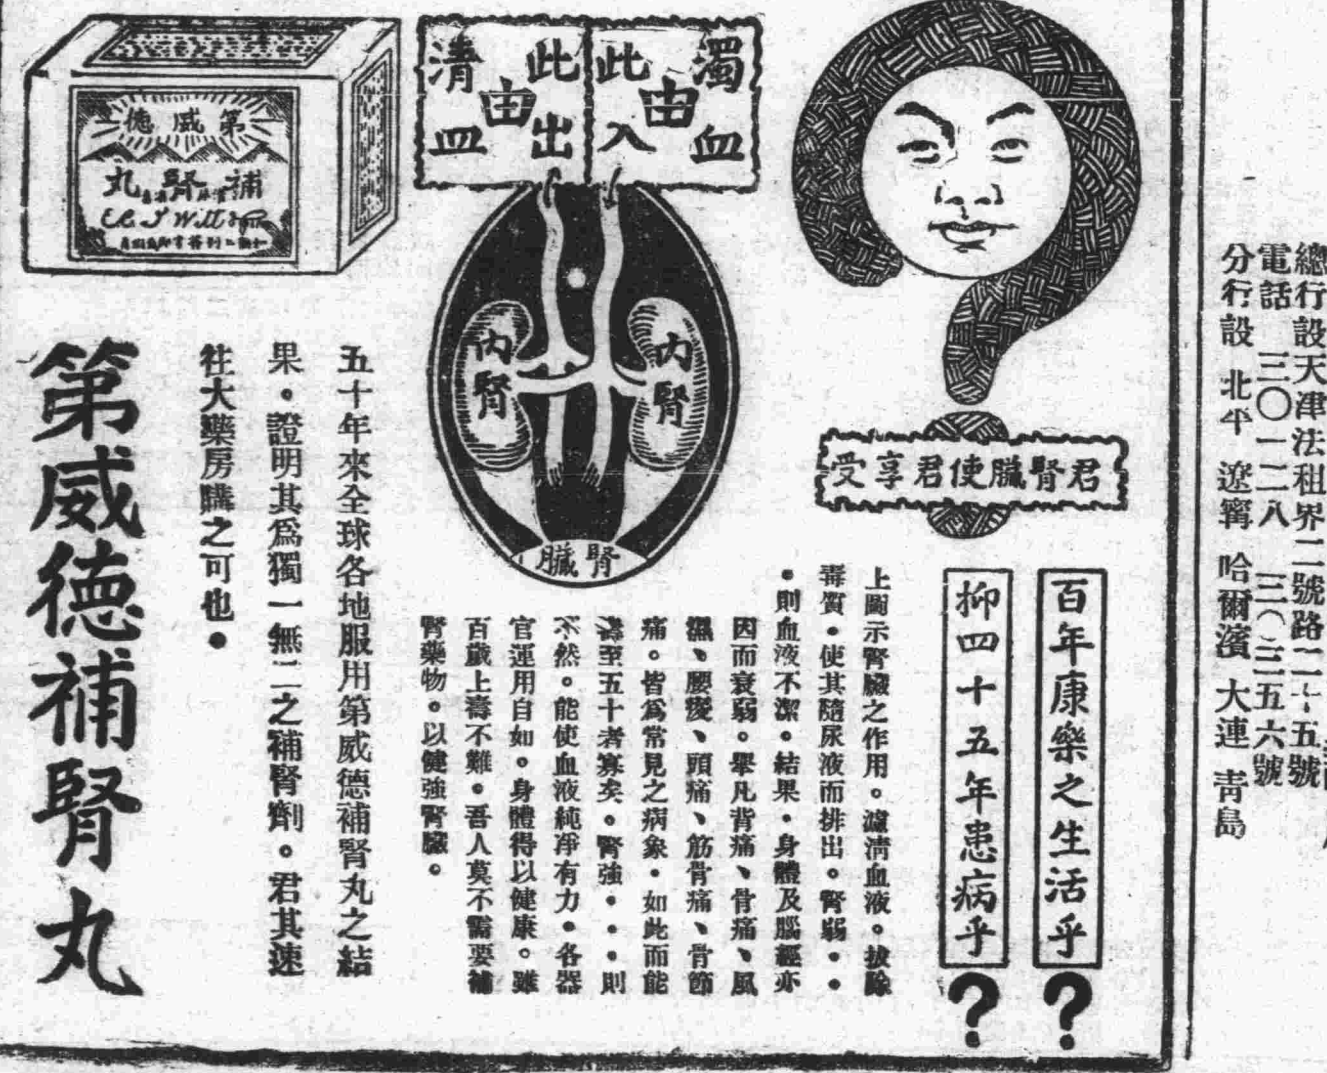 總行設天津法租界二號路二十五號
電話 三〇一二八 三〇三五六號
分行設 北平 遼寧 哈爾濱 大連 青島
君腎臟使君享受
百年康樂之生活乎？
抑四十五年患病乎？
濁血由此入
清血由此出
內腎
內腎
腎臟
上圖示腎臟之作用。濾清血液。拔除
毒質。使其隨尿液而排出。腎弱・・
・則血液不潔。結果。身體及腦經亦
因而衰弱。舉凡背痛、骨痛、風
濕、腰痠、頭痛、筋骨痛、骨節
痛。皆爲常見之病象。如此而能
壽至五十者寡矣。腎強・・・則
不然。能使血液純淨有力。各器
官運用自如。身體得以健康。雖
百歲上壽不難。吾人莫不需要補
腎藥物。以健強腎臟。
第威德
補腎丸
五十年來全球各地服用第威德補腎丸之結
果。證明其爲獨一無二之補腎劑。君其速
往大藥房購之可也。
第威德補腎丸